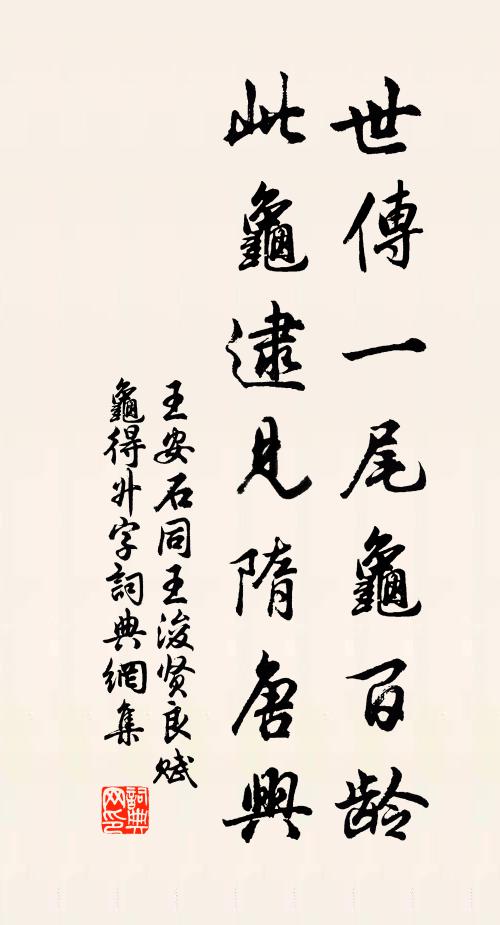 世傳一尾龜百龄
此龜逮見隋唐興
王安石同王浚贤良赋
龜得升字詞典網集
詞典网印